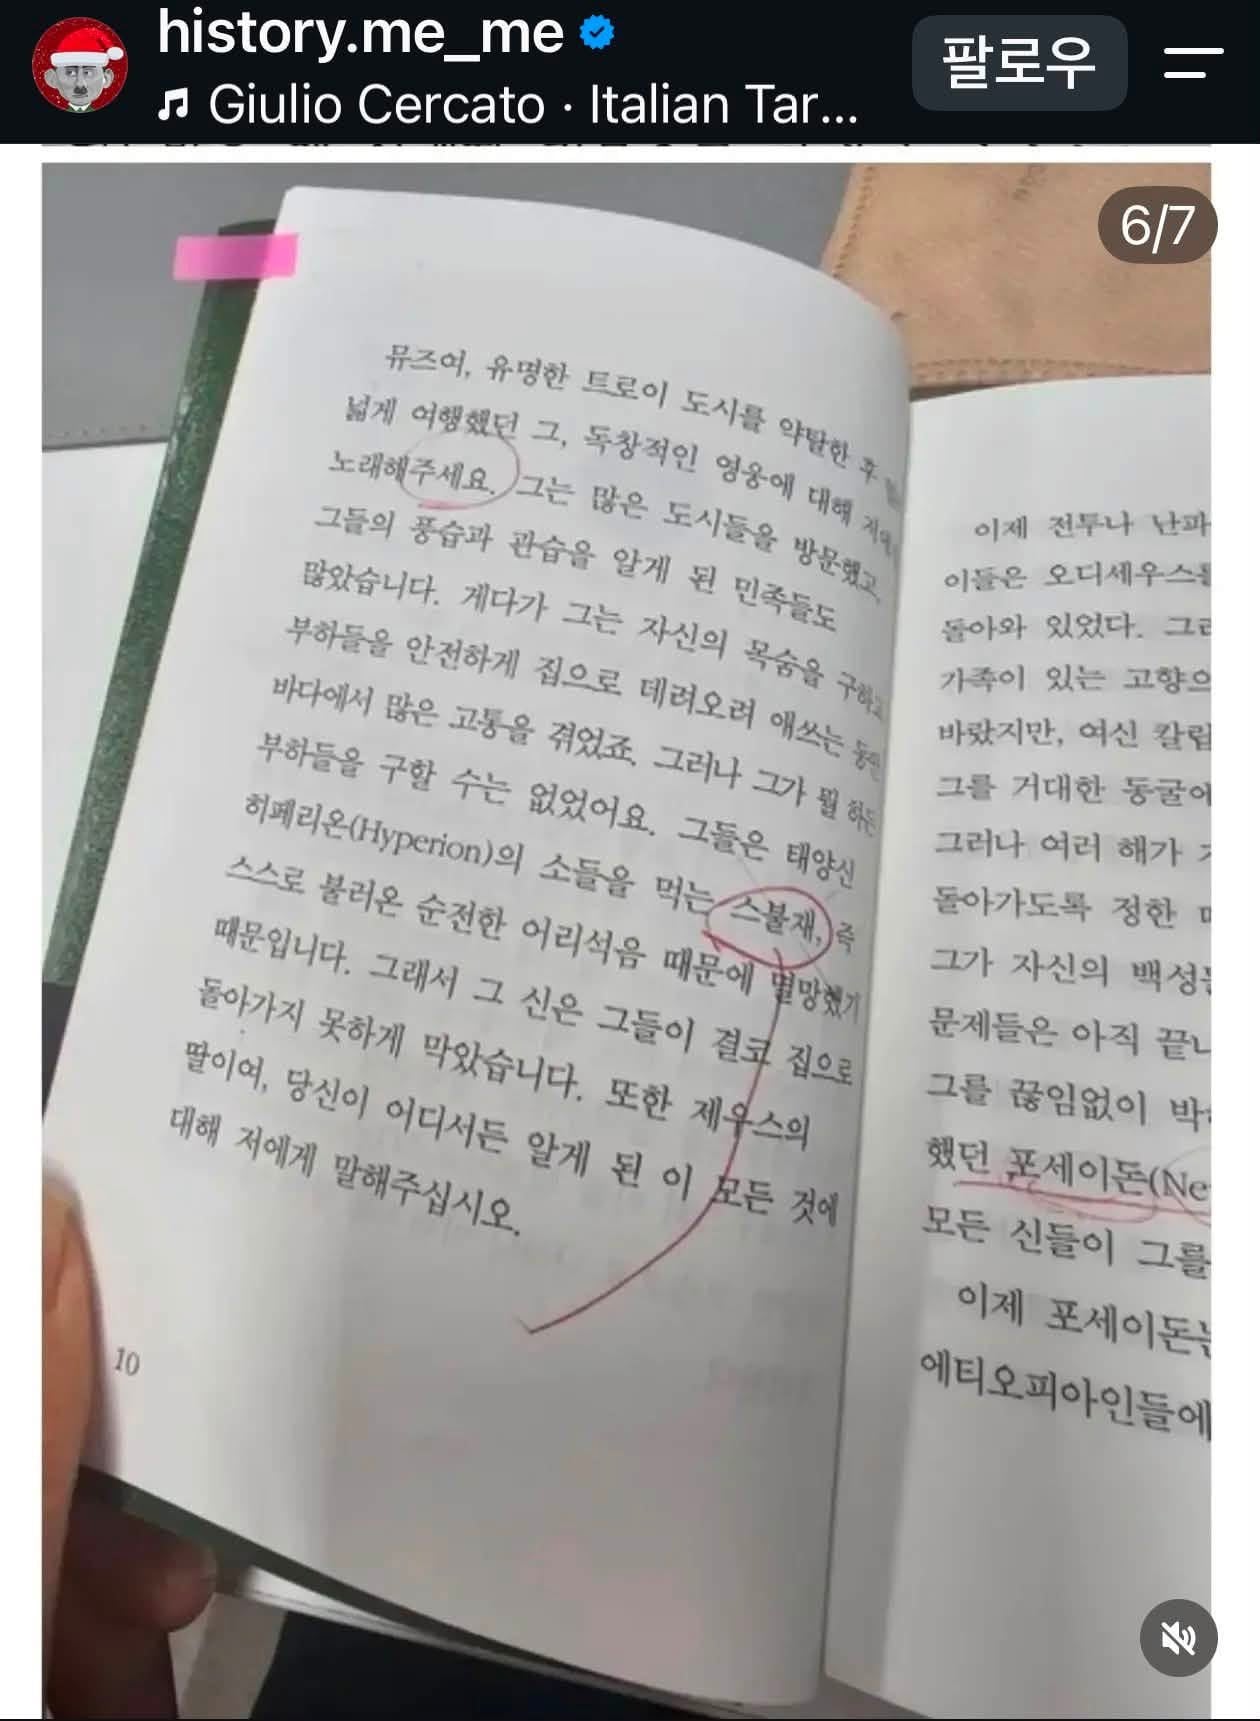 history.me_me
Giulio Cercato · Italian Tar...
팔로우
6/7
뮤즈여, 유명한 트로이 도시를 약탈한 후
넓게 여행했던 그, 독창적인 영웅에 대해
노래해주세요. 그는 많은 도시들을 방문했고,
그들의 풍습과 관습을 알게 된 민족들도
많았습니다. 게다가 그는 자신의 목숨을 구하고
부하들을 안전하게 집으로 데려오려 애쓰는 동안
바다에서 많은 고통을 겪었죠. 그러나 그가 뭘 하든
부하들을 구할 수는 없었어요. 그들은 태양신
히페리온(Hyperion)의 소들을 먹는 스불재, 즉
스스로 불러온 순전한 어리석음 때문에 멸망했기
때문입니다. 그래서 그 신은 그들이 결코 집으로
돌아가지 못하게 막았습니다. 또한 제우스의
딸이여, 당신이 어디서든 알게 된 이 모든 것에
대해 저에게 말해주십시오.
10
이제 전투나 난파
이들은 오디세우스를
돌아와 있었다.
가족이 있는 고향으
바랐지만, 여신 칼립
그를 거대한 동굴에
그러나 여러 해가
돌아가도록 정한
그가 자신의 백성들
문제들은 아직 끝나
그를 끊임없이
했던 포세이돈(Ne
모든 신들이 그를
이제 포세이돈은
에티오피아인들에